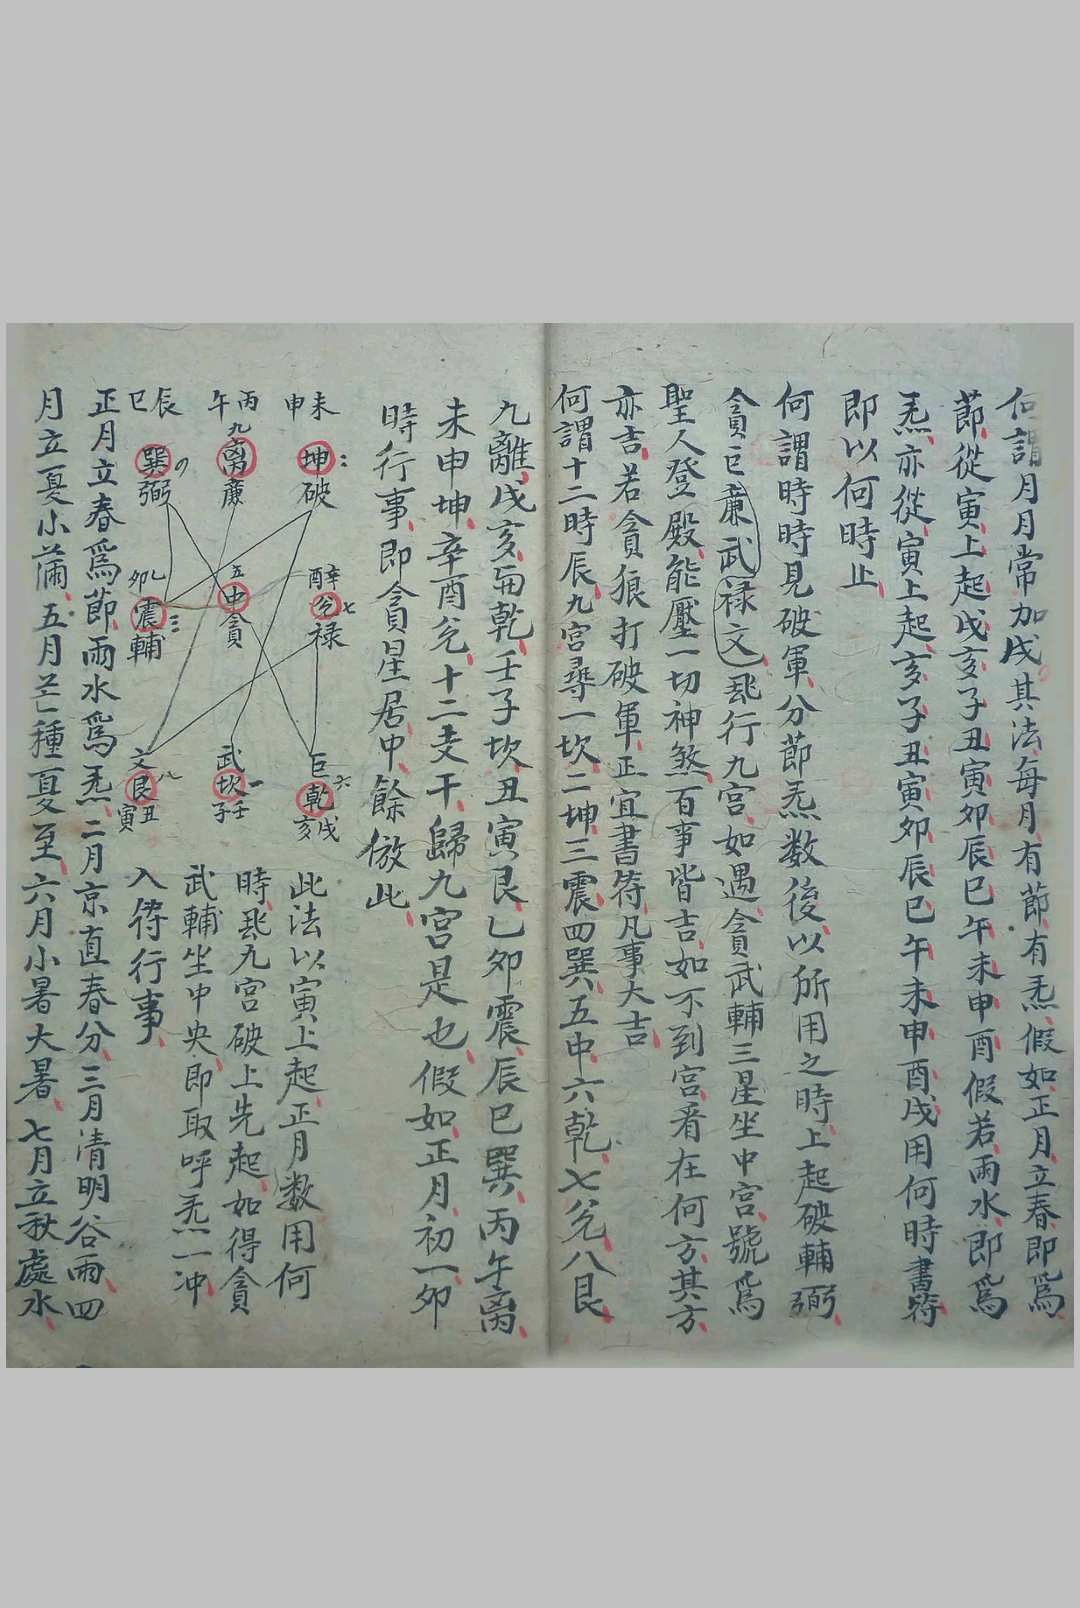 何謂月月常加戌其法每月有節有炁假如正月立春即爲
節從寅上起戌亥子丑寅卯辰巳午未申酉假若雨水即爲
炁亦從寅上起亥子丑寅卯辰巳午未申酉戌用何時書符
即以何時止
何謂時時見破軍分節炁数後以所用之時上起破輔弼
貪巨廉武禄文飛行九宫如遇貪武輔三星坐中宫號爲
聖人登殿能壓一切神煞百事皆吉如不到宫看在何方其方
亦吉若貪狼打破軍正宜書符凡事大吉
何謂十二時辰九宫尋一坎二坤三震四巽五中六乾七兊八艮
九離戌亥乾壬子坎丑寅艮乙卯震辰巳巽丙午离
未申坤辛酉兊十二支干歸九宫是也假如正月初一卯
時行事即貪星居中餘倣此
未申
坤
破
丙午
九离
廉
辰巳
巽
弼
辛酉
兊七
禄
五
中
貪
乙卯
震三
輔
巨六
乾
戌亥
武
坎一
壬子
文八
艮
丑寅
此法以寅上起正月数用何
時飛九宫破上先起如得貪
武輔坐中央即取呼炁一冲
入符行事
正月立春爲節雨水爲炁二月京直春分三月清明谷雨四
月立夏小滿五月芒種夏至六月小暑大暑七月立秋處水